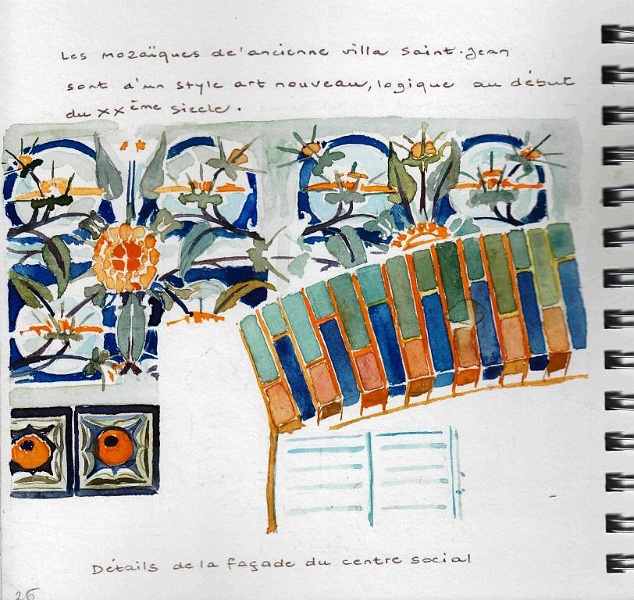 Les mozaïques de l'ancienne villa Saint-Jean
sont d'un style art nouveau, logique au début
du XXème siècle.
Détails de la façade du centre social
26